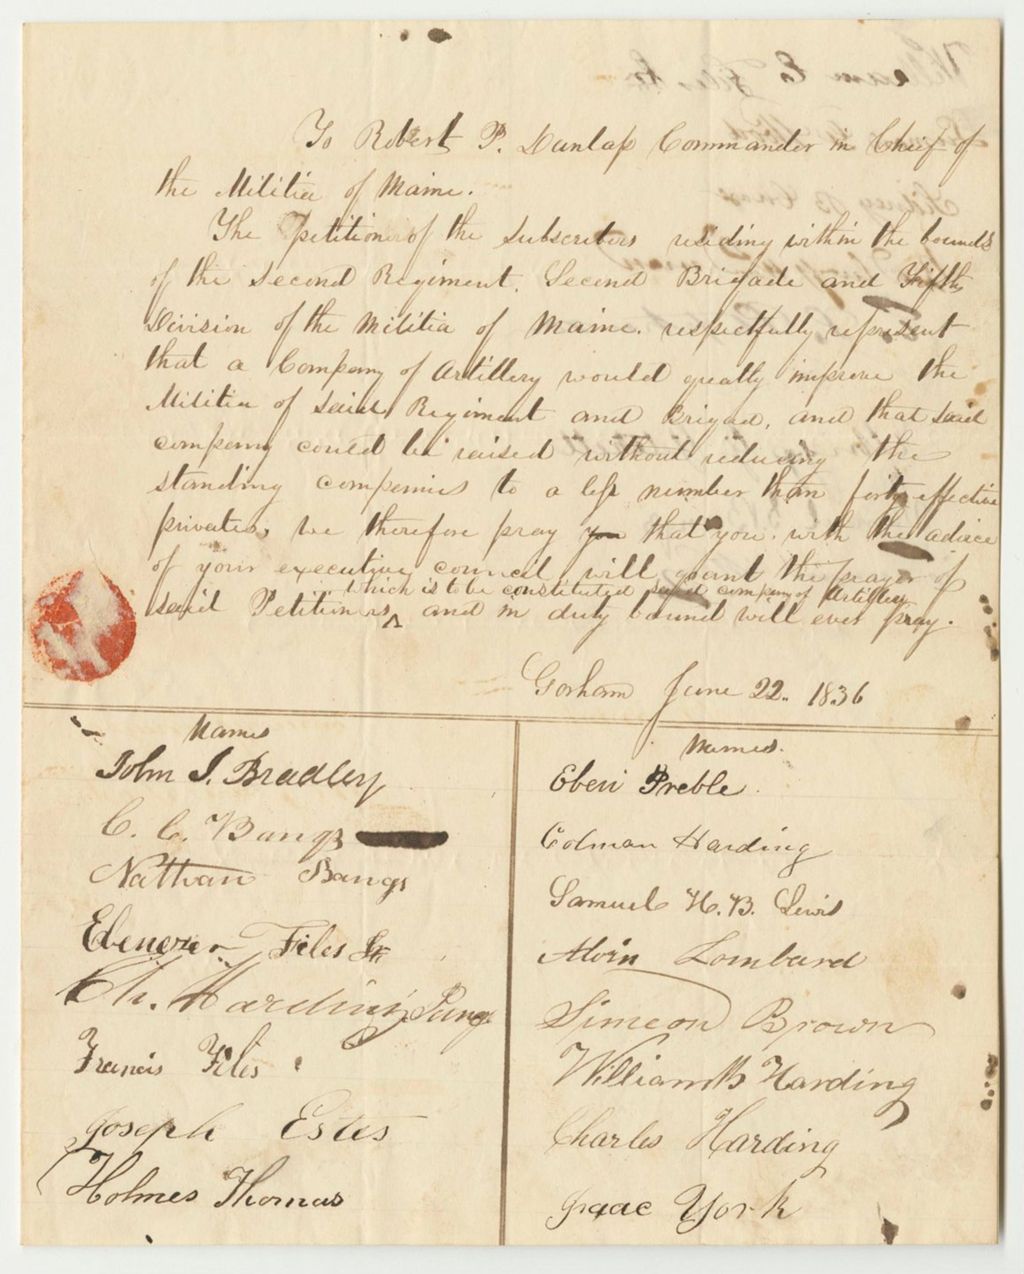 To Robert P. Dunlap Commander in Chief of
the Militia of Maine.
The petition of the subscribers residing within the bounds
of the Second Regiment, Second Brigade and Fifth
Division of the Militia of Maine. respectfully represent
that a Company of Artillery would greatly improve the
Militia of said Regiment and Brigad, and that said
company could be raised without reducing the
standing companies to a less number than forty effective
privates, we therefore pray you that you. with the advice
of your executive council will grant the prayer of
which is to be constituted said company of Artillery
said Petitioners ^ and in duty bound will ever pray.
Gorham June 22. 1836
Names
John J. Bradley
C. C. Bangs
Nathan Bangs
Ebenezer Files Jr
Ch. Harding
Francis Files
Joseph Estes
Holmes Thomas
Names.
Eben Preble.
Colman Harding
Samuel H. B. Lewis
Alvin Lombard
Simeon Brown
William B Harding
Charles Harding
Isaac York